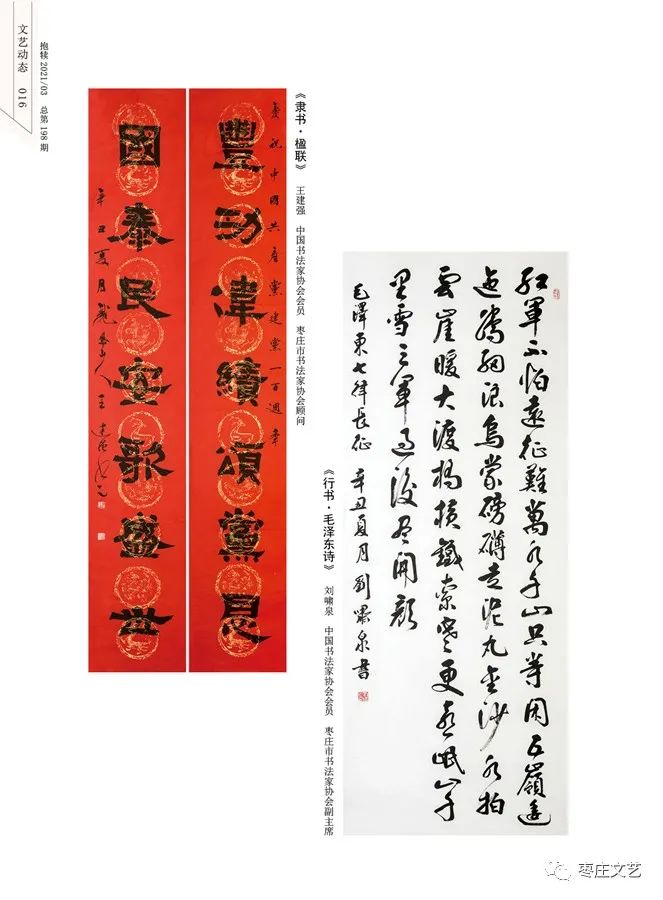 文艺动态 016
抱犊 2021/03 总第 198 期
《隶书·楹联》 王建强 中国书法家协会会员 枣庄市书法家协会顾问
慶祝中國共產黨建黨一百週年
豐功偉績頌黨恩
國泰民安歌盛世
辛丑夏月 山人王建强
《行书·毛泽东诗》 刘啸泉 中国书法家协会会员 枣庄市书法家协会副主席
紅軍不怕遠征難萬水千山只等閑五嶺逶
迤騰細浪烏蒙磅礴走泥丸金沙水拍
雲崖暖大渡橋橫鐵索寒更喜岷山千
里雪三軍過後盡開顏
毛澤東七律長征 辛丑夏月劉嘯泉書
枣庄文艺